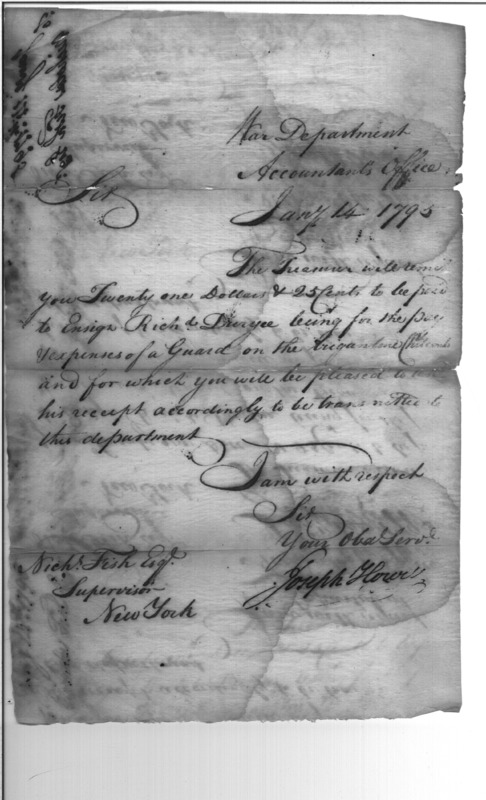 War Department
Accountants Office
Sir
Jany. 14 1795
The Treasurer will remit
you Twenty one Dollars & 25 Cents to be paid
to Ensign Richd. Duryee being for the pay
& expenses of a Guard on the brigantine
and for which you will be pleased to
his receipt accordingly to be transmitted to
this department
I am with respect
Sir
Your Obd. Servt.
Joseph Howell
Nichs. Fish Esqr.
Supervisor
New York